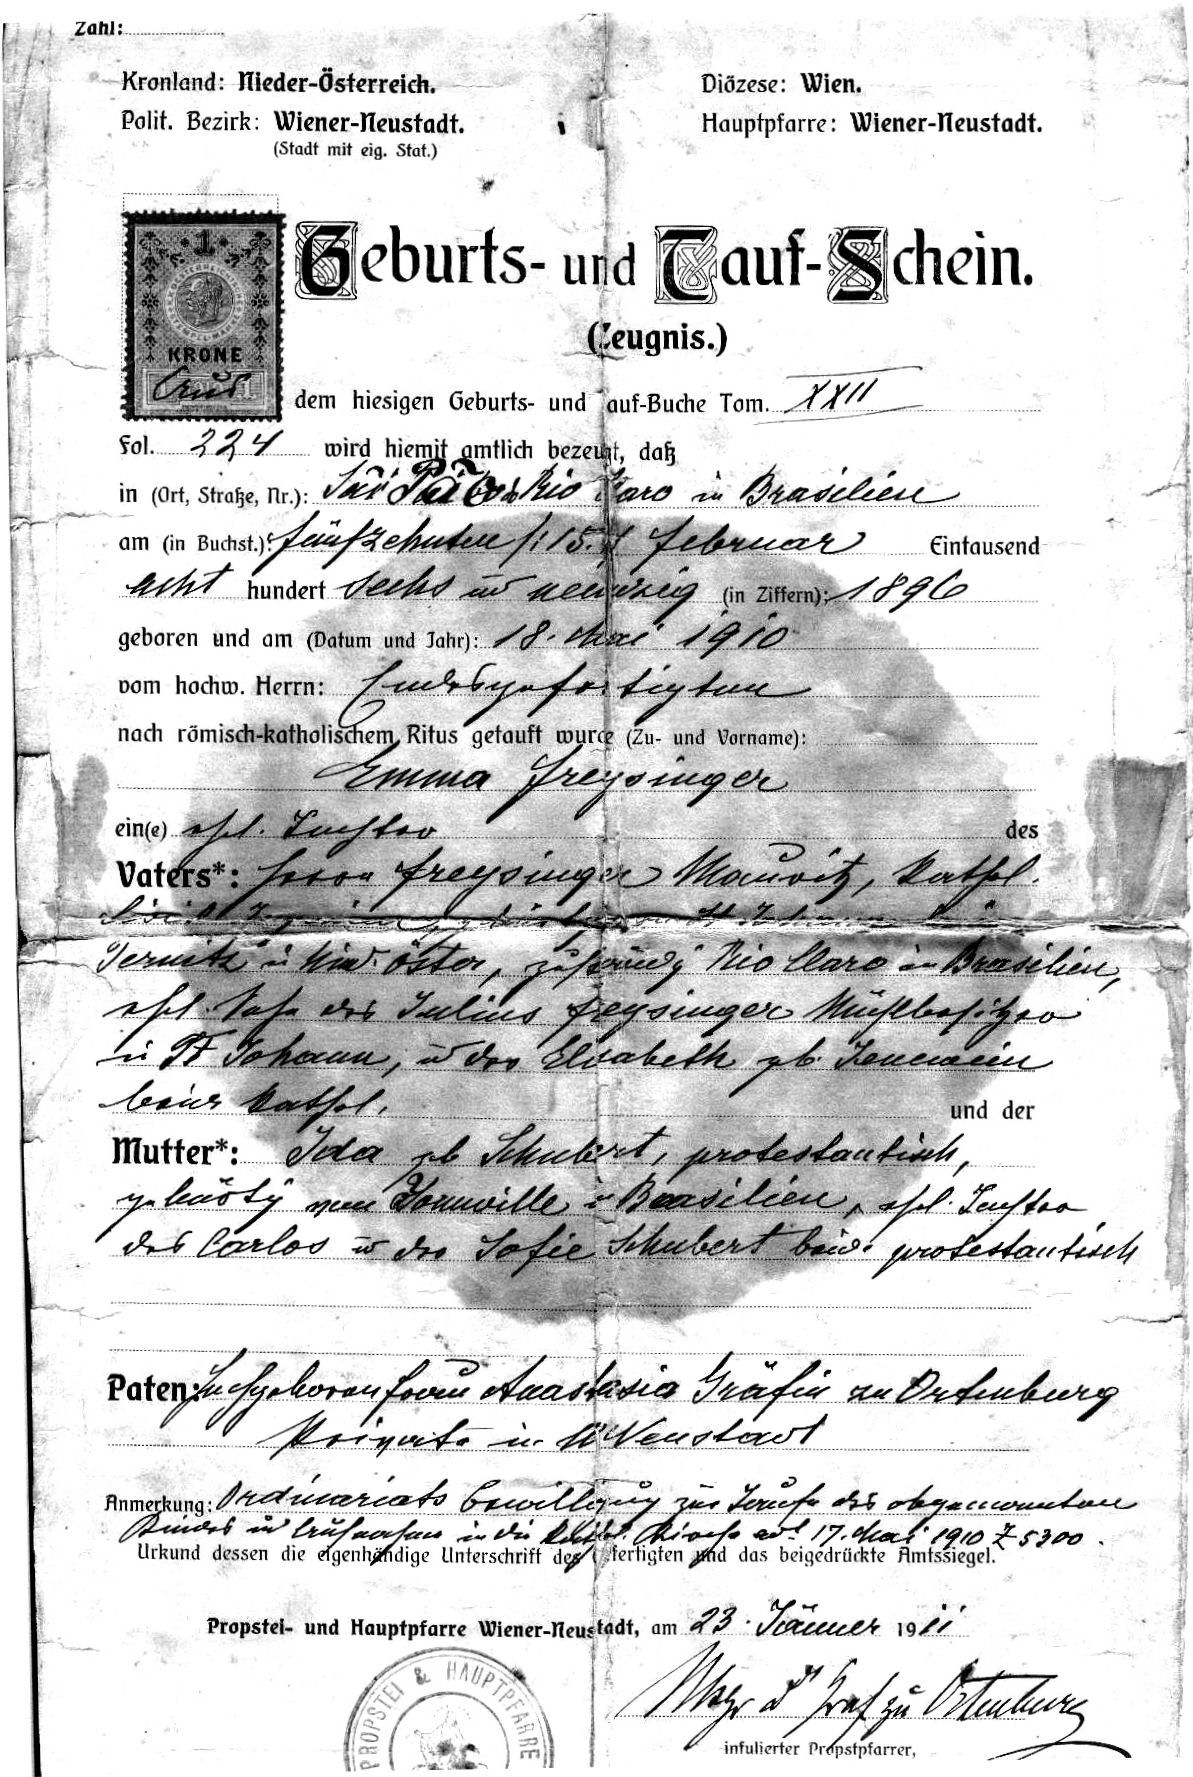 Zahl:
Kronland: Nieder-Österreich.
Diözese: Wien.
Polit. Bezirk: Wiener-Neustadt.
Hauptpfarre: Wiener-Neustadt.
(Stadt mit eig. Stat.)
1
KRONE
Geburts- und Tauf-Schein.
(Zeugnis.)
Aus dem hiesigen Geburts- und Tauf-Buche Tom. XXII
Fol. 224 wird hiemit amtlich bezeugt, daß
in (Ort, Straße, Nr.): Rio Claro in Brasilien
am (in Buchst.): fünfzehnten /: 15. :/ Februar Eintausend
acht hundert sechs u neunzig (in Ziffern): 1896
geboren und am (Datum und Jahr): 18. Mai 1910
vom hochw. Herrn: Endesgefertigten
nach römisch-katholischem Ritus getauft wurde (Zu- und Vorname):
Emma Freysinger
ein(e) ehel. Tochter des
Vaters*: Herrn Freysinger Moritz, kathol.
Ternitz in Nied. Öster, zuständig Rio Claro in Brasilien,
ehel. Sohn des Julius Freysinger Mühlbesitzer
in St Johann, u der Elisabeth gb.
beide kathol. und der
Mutter*: Ida gb Schubert, protestantisch,
gebürtig von Joinville in Brasilien, ehel. Tochter
des Carlos u der Sofie Schubert beide protestantisch
Paten: Hochgeboren Frau Anastasia Gräfin zu Ortenburg
Private in W Neustadt
Anmerkung: Ordinariats Bewilligung zur Taufe des obgenannten
Kindes u Aufnahme in die kathol. Kirche 17. Mai 1910 Z 5300.
Urkund dessen die eigenhändige Unterschrift des Gefertigten und das beigedrückte Amtssiegel.
Propstei- und Hauptpfarre Wiener-Neustadt, am 23. Jänner 1911
PROPSTEI & HAUPTPFARRE
Msgr Graf zu Ortenburg
infulierter Propstpfarrer,